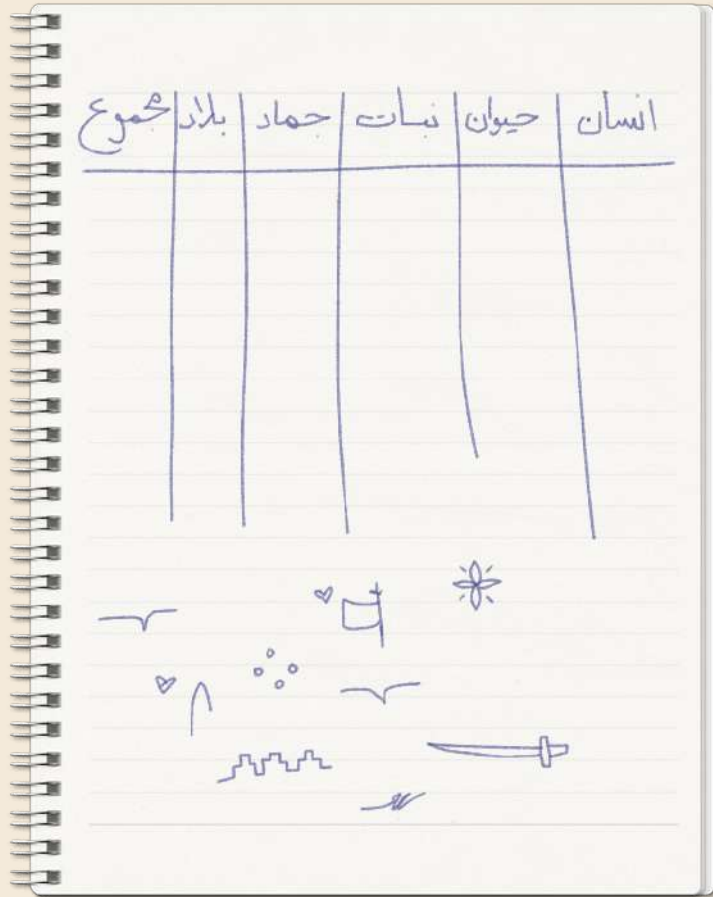 انسان حيوان نبات جماد بلاد مجموع